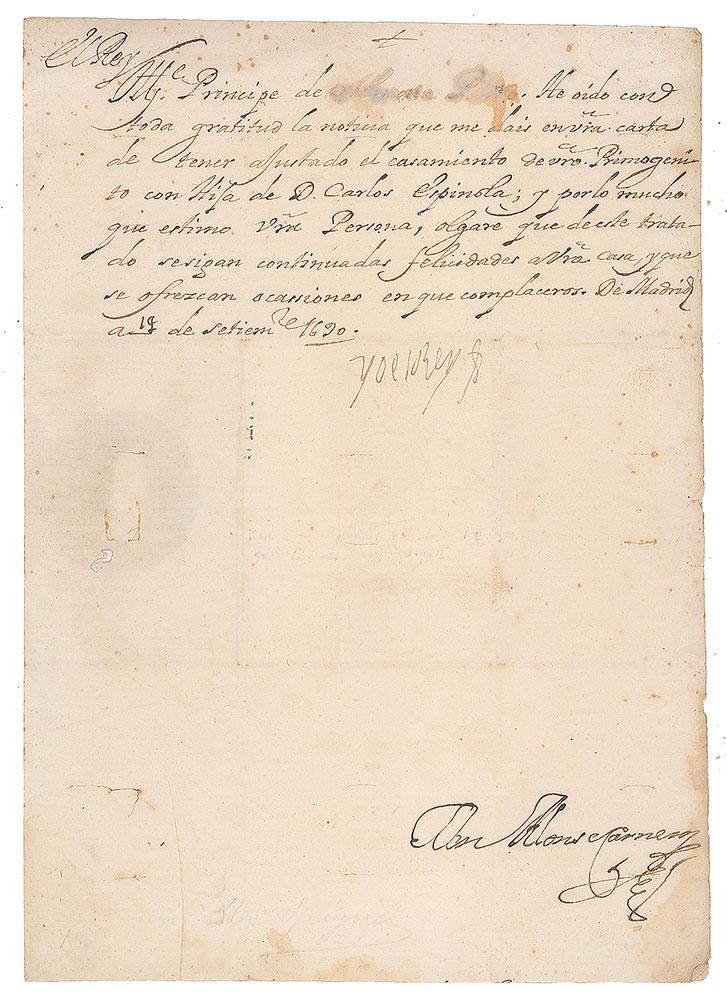 +
El Rey
Ill.e Principe de . He oido con
toda gratitud la noticia que me dais en vrã. carta
de tener ajustado el casamiento de vrõ. Primogeni-
to con Hija de D. Carlos Espinola; y por lo mucho
que estimo vrã Persona, olgare que de este trata-
do se sigan continuadas felicidades a vrã Casa, y que
se ofrezcan ocassiones en que complaceros. De Madrid
a de setiem.re 1690.
Yo el Rey
Don Alonso Carnero